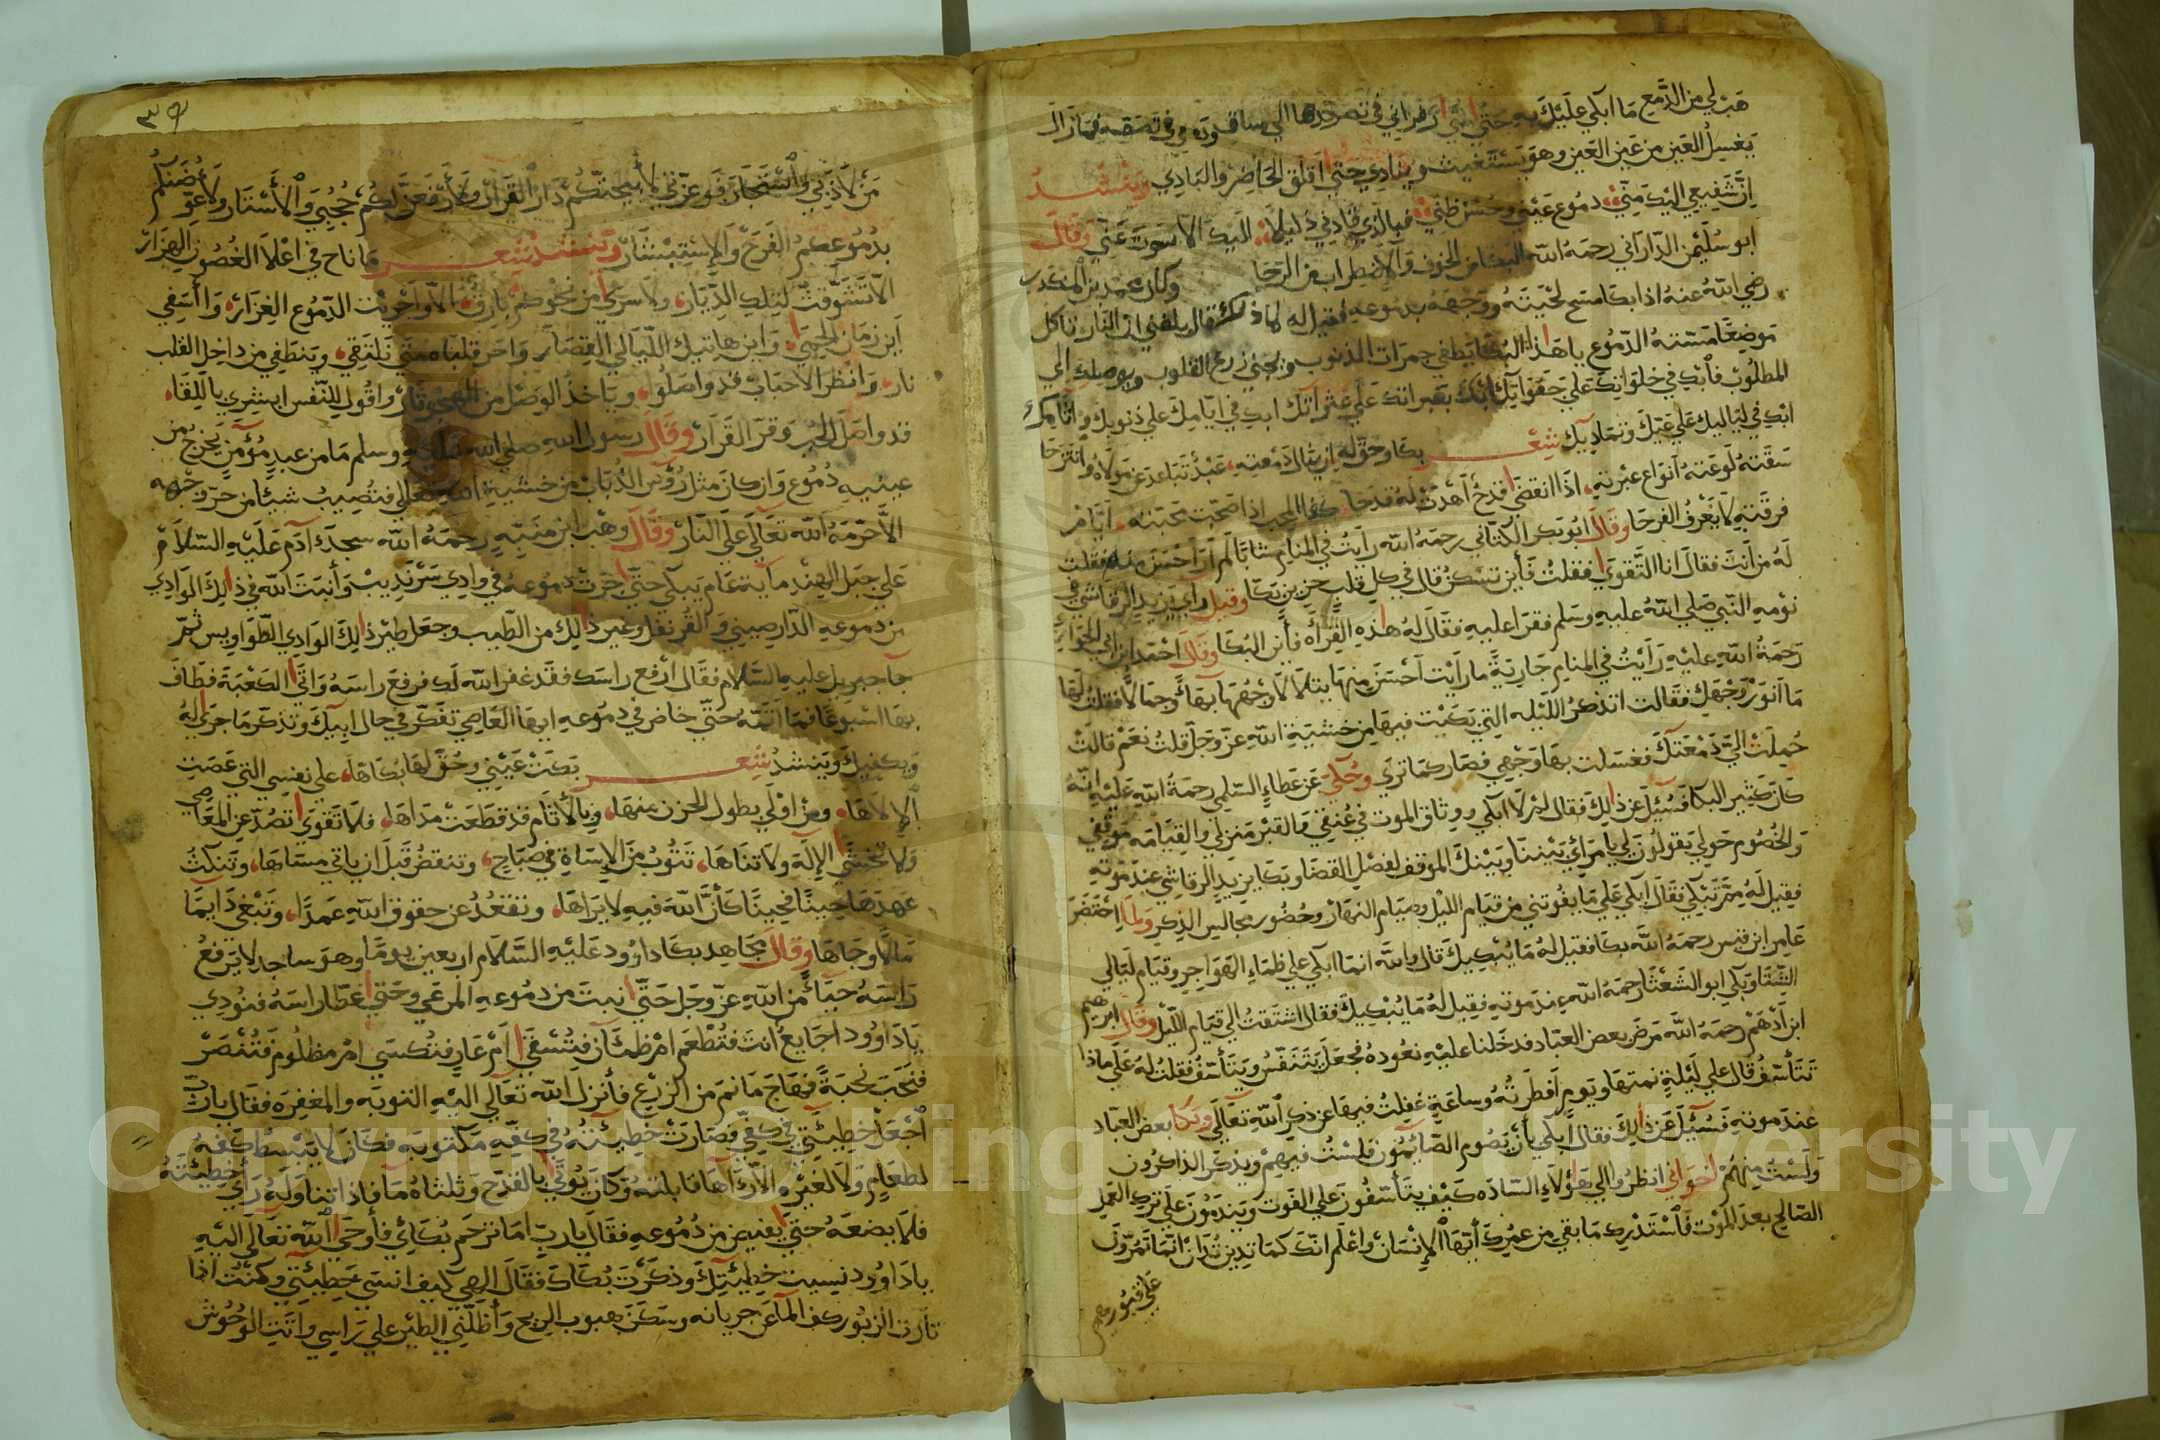 هب لي من الدمع ما ابكي عليك به حتي
يغسل العين من عين العين وهو يستغيث وينادي حتي اقلق الحاضر والبادي وينشد
ان شفيعي اليك مني دموع عيني وحسن ظني فبالذي قادني ذليلا اليك الا عني وقال
ابو سليمن الداراني رحمة الله البكا من الخوف والاضطراب من الرجا وكان محمد بن المنكدر
رضي الله عنه اذا بكا مسح لحيته ووجهه بدموعه فقيل له لما ذلك فقال بلغني ان النار تاكل
موضعا مسته الدموع يا هذا البكا يطفي جمرات الذنوب ويحيي زرع القلوب ويوصلك الي
المطلوب فابك في خلواتك علي جفواتك ابك بعبراتك علي عثراتك ابك في ايامك علي ذنوبك واثامك
ابك في لياليك علي غيك وتماديك شعر بكا وحق له ان سال دمعته عبد تباعد عن مولاه وانتزحا
سقته لوعته انواع عبرته اذا انقضا قدح اهدت له قدحا كذا المحب اذا صحت محبته ايام
فرقته لا يعرف الفرحا وقال ابو بكر الكتاني رحمه الله رايت في المنام شابا لم ار احسن منه فقلت
له من انت فقال انا التقوي فقلت فاين تسكن قال في كل قلب حزين بكا وقيل راي يزيد الرقاشي في
نومه النبي صلي الله عليه وسلم فقرا عليه فقال له هذه القراه فاين البكا وقال احمد ابن ابي الحواري
رحمة الله عليه رايت في المنام جارية ما رايت احسن منها يتلالا وجهها بهاء وجمالا فقلت لها
ما انور وجهك فقالت اتذكر الليله التي بكيت فيها من خشية الله عز وجل قلت نعم قالت
حملت الي دمعتك فغسلت بها وجهي فصار كما تري وحكي عن عطاء السلمي رحمة الله عليه انه
كان كثير البكا فسئل عن ذلك فقال لم لا ابكي ووثاق الموت في عنقي والقبر منزلي والقيامه موقفي
والخصوم حولي يقولون لي يا مرائي بيننا وبينك الموقف لفصل القضا وبكا يزيد الرقاشي عند موته
فيقيل له مم تبكي فقال ابكي علي ما يفوتني من قيام الليل وصيام النهار وحضور مجالس الذكر ولما احتضر
عامر ابن قيس رحمه الله بكا فقيل له ما يبكيك قال والله انما ابكي علي ظماء الهواجر وقيام ليالي
الشتا وبكي ابو الشعثا رحمه الله عند موته فقيل له ما يبكيك فقال اشتقت الي قيام الليل وقال ابرهيم
ابن ادهم رحمه الله مرض بعض العباد فدخلنا عليه نعوده فجعل يتنفس ويتأسف فقلت له علي ماذا
تتأسف قال علي ليلة نمتها ويوم افطرته وساعة غفلت فيها عن ذكر الله تعالي وبكا بعض العباد
عند موته فسئل عن ذلك فقال ابكي بأن يصوم الصائمون فلست فيهم ويذكر الذاكرون
ولست منهم اخواني انظروا الي هؤلاء الساده كيف يتأسفون علي الفوت ويندمون علي ترك العمل
الصالح بعد الموت فاستدرك ما بقي من عمرك أيها الانسان واعلم انك كما تدين تدان انما تمرون
علي قبورهم
٣٥
من لاذ بي واستجار فوعزتي لأبيحنكم دار القرار ولأرفعن لكم حجبي والأستار ولأعوضنكم
بدموعكم الفرح والاستبشار وتنشد شعر ما ناح في اعلا الغصون الهزار
الا تشوقت لتلك الديار ولا سري من نحوكم بارق الا واجريت الدموع الغزار وا أسفي
اين زمان الحمي واين هاتيك الليالي القصار واحر قلباه متي نلتقي وينطفي من داخل القلب
نار وانظر الاحباب قد واصلوا وياخذ الوصل من الهجر ثار واقول للنفس ابشري باللقا
قد واصل الحب وقر القرار وقال رسول الله صلي الله عليه وسلم ما من عبد مؤمن يخرج من
عينيه دموع وان كان مثل رؤس الذباب من خشية الله تعالي فتصيب شيئا من حر وجهه
الا حرمه الله تعالي علي النار وقال وهب ابن منبه رحمه الله سجد ادم عليه السلام
علي جبل الهند ماية عام يبكي حتي جرت دموعه في وادي سرنديب وأنبت الله في ذلك الوادي
من دموعه الدار صيني والقرنفل وغير ذلك من الطيب وجعل طير ذلك الوادي الطواويس ثم
جآ جبريل عليه السلام فقال ارفع راسك فقد غفر الله لك فرفع راسه واتي الكعبة فطاف
بها اسبوعا فما اتمه حتي خاض في دموعه ايها العاصي تفكر في حال ابيك وتذكر ما جري له
ويكفيك وينشد شعر بكت عيني وحق لها بكاها علي نفسي التي عصت
الالاها ومن اولي بطول الحزن منها وبالأثام قد قطعت مداها فلا تقوي تصد عن المعاصي
ولا تخشي الاله ولا تناها تتوب من الاساة في صباح وتنقض قبل ان ياتي مساها وتنكث
عهدها حينا فحينا كأن الله فيه لا يراها وتقعد عن حقوق الله عمدا وتبغي دايما
مالا وجاها وقال مجاهد بكا داوود عليه السلام اربعين يوما وهو ساجد لا يرفع
راسه حياء من الله عز وجل حتي انبت من دموعه المرعي وحتي غطا راسه فنودي
يا داوود اجايع انت فتطعم ام ظمئآن فتسقي ام عار فتكسي ام مظلوم فتنصر
فنحب نحبة فهاج ما نم من الزرع فأنزل الله تعالي اليه التوبه والمغفره فقال يا رب
اجعل خطيئتي في كفي فصارت خطيئته في كفه مكتوبه فكان لا يبسط كفه
لطعام ولا لغيره الا راها قابلته وكان يؤتي بالقدح وثلثاه ما فاذا تناوله راي خطيئته
فلا يضعه حتي يفيض من دموعه فقال يا رب اما ترحم بكائي فأوحي الله تعالي اليه
يا داوود نسيت خطيئتك وذكرت بكاك فقال الهي كيف انسي خطيئتي وكنت اذا
تلوت الزبور كف المآ عن جريانه وسكن هبوب الريح وأظلني الطير علي راسي واتت الوحوش